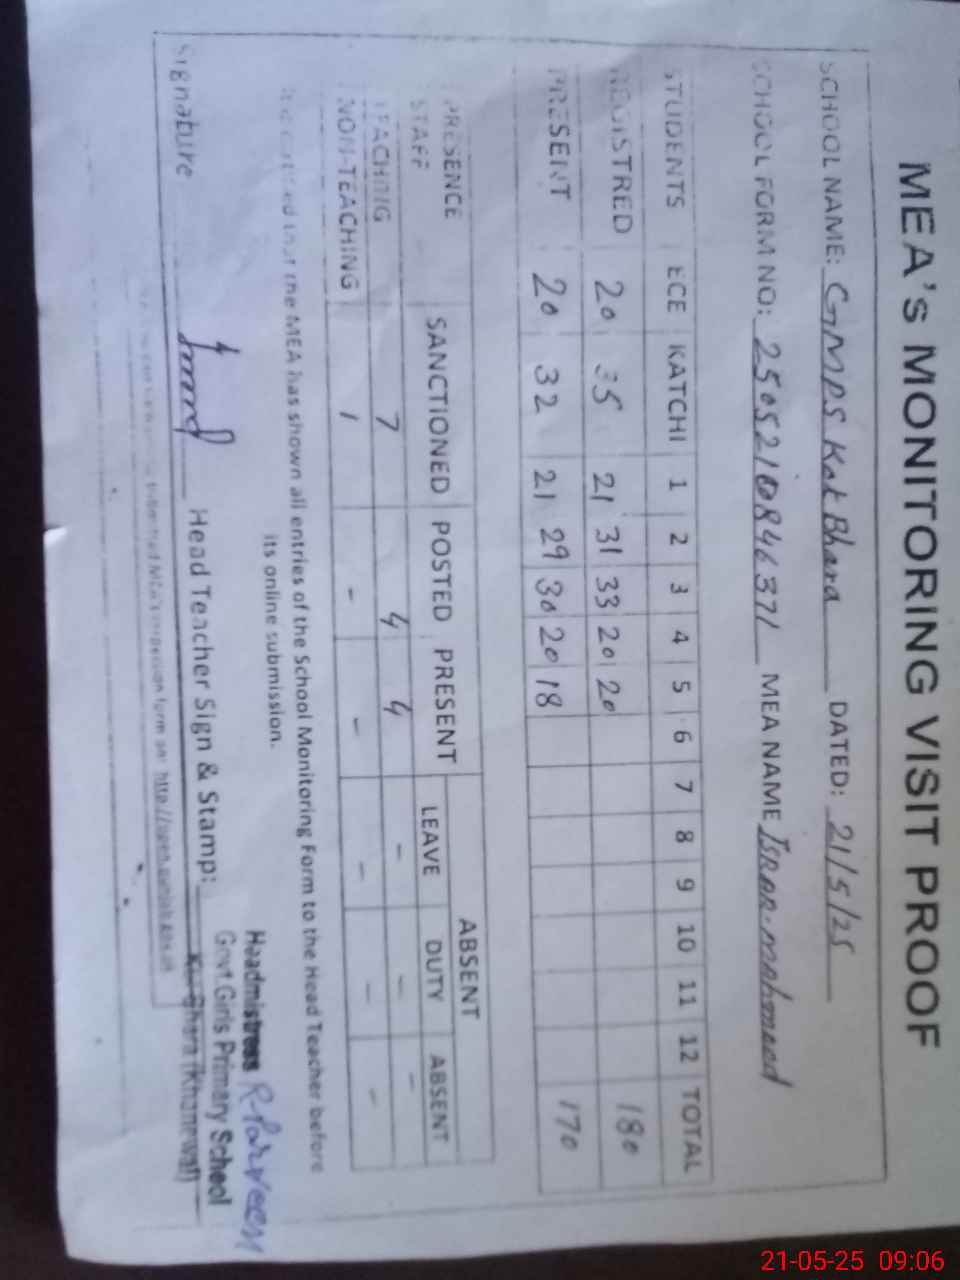 MEA's MONITORING VISIT PROOF
SCHOOL NAME: GMPS Kot Bhara DATED: 21/5/25
SCHOOL FORM NO: MEA NAME
STUDENTS ECE KATCHI 1 2 3 4 5 6 7 8 9 10 11 12 TOTAL
REGISTRED 20 35 21 31 33 20 20 180
PRESENT 20 32 21 29 30 20 18 170
ABSENT
PRESENCE SANCTIONED POSTED PRESENT LEAVE DUTY ABSENT
STAFF
TEACHING 7 4 4 - - -
NON-TEACHING 1 - - - - -
It is certified that the MEA has shown all entries of the School Monitoring Form to the Head Teacher before
its online submission.
Signature Head Teacher Sign & Stamp:
Headmistress R-Parveen
Govt Girls Primary School
Bhara (Khanewal)
21-05-25 09:06